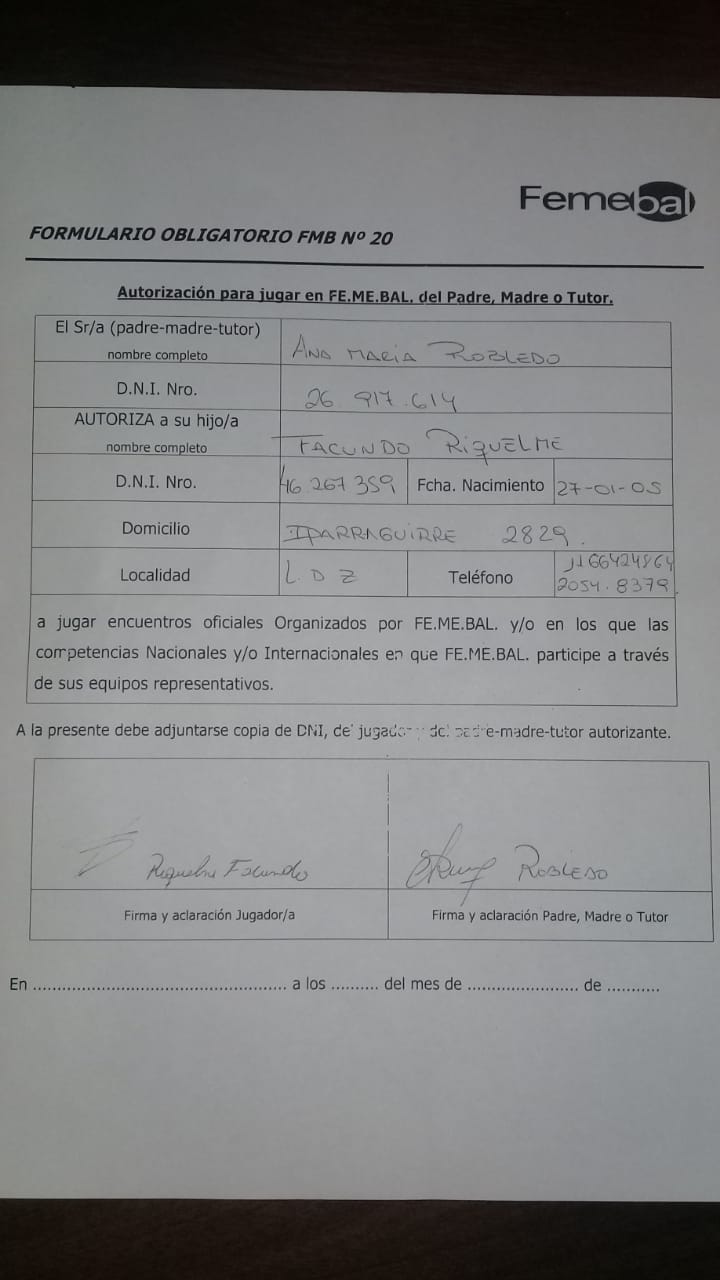 Femebal
FORMULARIO OBLIGATORIO FMB Nº 20
Autorización para jugar en FE.ME.BAL. del Padre, Madre o Tutor.
El Sr/a (padre-madre-tutor)
nombre completo
ANA MARIA ROBLEDO
D.N.I. Nro.
26.917.614
AUTORIZA a su hijo/a
nombre completo
FACUNDO RIQUELME
D.N.I. Nro.
46.267.359
Fcha. Nacimiento
27-01-05
Domicilio
IPARRAGUIRRE 2829.
Localidad
L D Z
Teléfono
1166424864
2054.8379
a jugar encuentros oficiales Organizados por FE.ME.BAL. y/o en los que las
competencias Nacionales y/o Internacionales en que FE.ME.BAL. participe a través
de sus equipos representativos.
A la presente debe adjuntarse copia de DNI, del jugador y del padre-madre-tutor autorizante.
Riquelme Facundo
ROBLEDO
Firma y aclaración Jugador/a
Firma y aclaración Padre, Madre o Tutor
En ..................................................... a los .......... del mes de ....................... de ...........